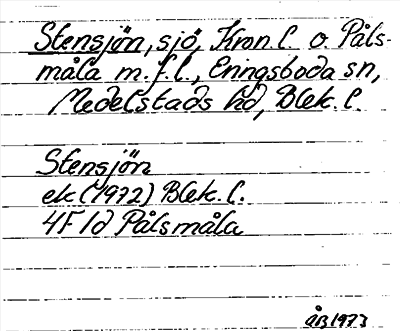 Stensjön, sjö, Kron. l. o. Påls-
måla m. f. l., Eringsboda sn,
Medelstads hd, Blek. l.
Stensjön
ek (1972) Blek. l.
4F 1d Pålsmåla
ÅB 1973